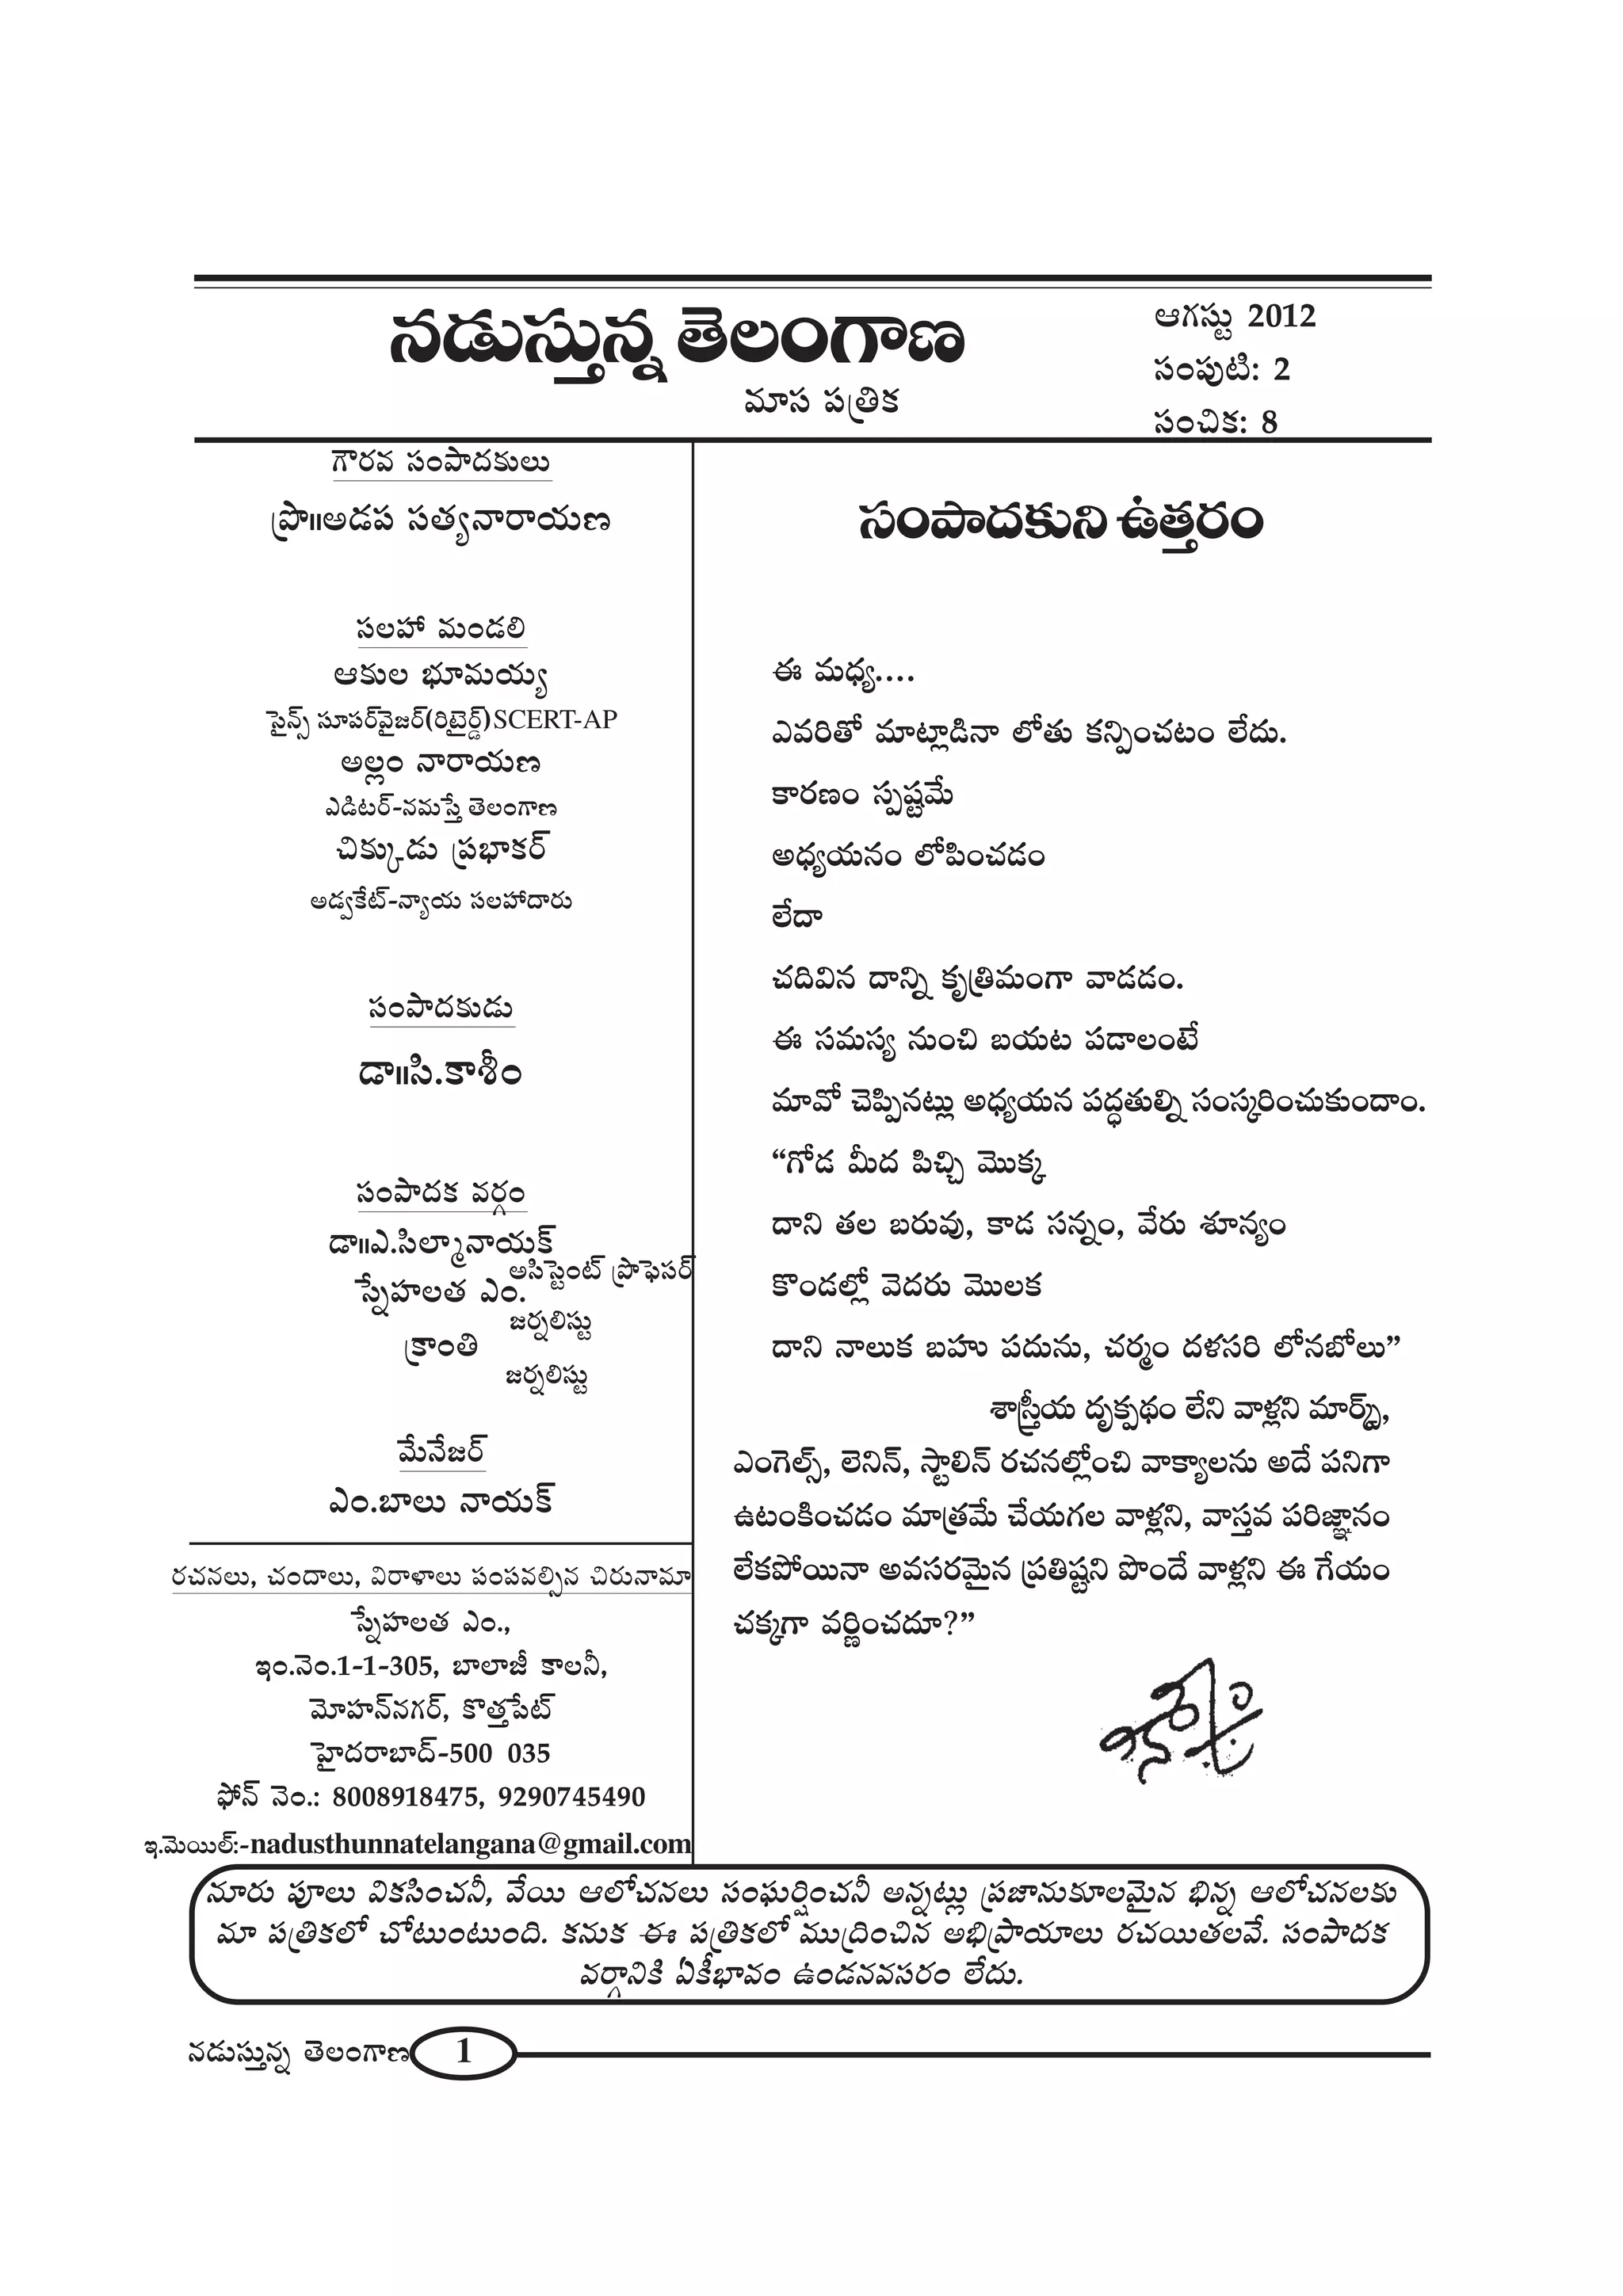 నడుస్తున్న తెలంగాణ
మాస పత్రిక
ఆగస్టు 2012
సంపుటి: 2
సంచిక: 8
గౌరవ సంపాదకులు
ప్రొ॥అడప సత్యనారాయణ
సలహా మండలి
ఆకుల భూమయ్య
సైన్స్ సూపర్‌వైజర్(రిటైర్డ్)SCERT-AP
అల్లం నారాయణ
ఎడిటర్-నమస్తే తెలంగాణ
చిక్కుడు ప్రభాకర్
అడ్వకేట్-న్యాయ సలహాదారు
సంపాదకుడు
డా॥సి.కాశీం
సంపాదక వర్గం
డా॥ఎ.సిల్మానాయక్
అసిస్టెంట్ ప్రొఫెసర్
స్నేహలత ఎం.
జర్నలిస్టు
క్రాంతి
జర్నలిస్టు
మేనేజర్
ఎం.బాలు నాయక్
రచనలు, చందాలు, విరాళాలు పంపవల్సిన చిరునామా
స్నేహలత ఎం.,
ఇం.నెం.1-1-305, బాలాజీ కాలనీ,
మోహన్‌నగర్, కొత్తపేట్
హైదరాబాద్-500 035
ఫోన్ నెం.: 8008918475, 9290745490
ఇ.మెయిల్:-nadusthunnatelangana@gmail.com
సంపాదకుని ఉత్తరం
ఈ మధ్య....
ఎవరితో మాట్లాడినా లోతు కన్పించటం లేదు.
కారణం స్పష్టమే
అధ్యయనం లోపించడం
లేదా
చదివిన దాన్ని కృత్రిమంగా వాడడం.
ఈ సమస్య నుంచి బయట పడాలంటే
మావో చెప్పినట్లు అధ్యయన పద్ధతుల్ని సంస్కరించుకుందాం.
“గోడ మీద పిచ్చి మొక్క
దాని తల బరువు, కాడ సన్నం, వేరు శూన్యం
కొండల్లో వెదరు మొలక
దాని నాలుక బహు పదును, చర్మం దళసరి లోనబోలు”
శాస్త్రీయ దృక్పథం లేని వాళ్లని మార్క్స్,
ఎంగెల్స్, లెనిన్, స్టాలిన్ రచనల్లోంచి వాక్యాలను అదే పనిగా
ఉటంకించడం మాత్రమే చేయగల వాళ్లని, వాస్తవ పరిజ్ఞానం
లేకపోయినా అవసరమైన ప్రతిష్టని పొందే వాళ్లని ఈ గేయం
చక్కగా వర్ణించదూ?”
నూరు పూలు వికసించనీ, వేయి ఆలోచనలు సంఘర్షించనీ అన్నట్లు ప్రజానుకూలమైన భిన్న ఆలోచనలకు
మా పత్రికలో చోటుంటుంది. కనుక ఈ పత్రికలో ముద్రించిన అభిప్రాయాలు రచయితలవే. సంపాదక
వర్గానికి ఏకీభావం ఉండనవసరం లేదు.
నడుస్తున్న తెలంగాణ 1